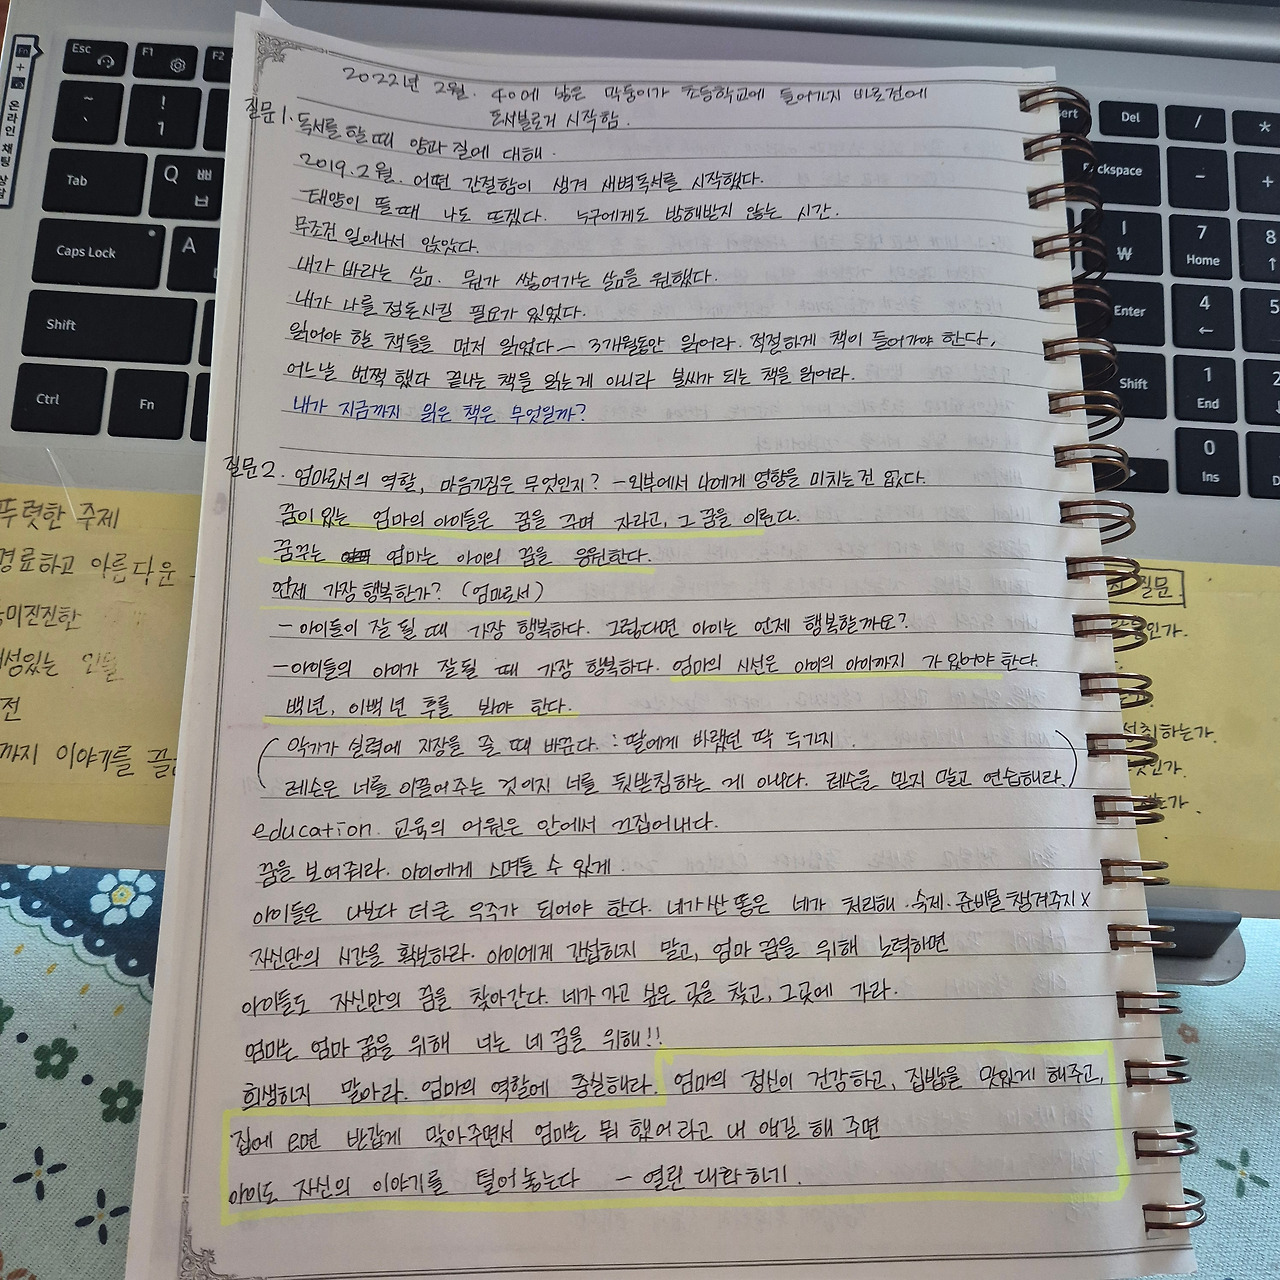 2022년 2월. 40에 낳은 막둥이가 초등학교에 들어가지 바로전에
도서블로거 시작함.
질문1. 독서를 할 때 양과 질에 대해.
2019. 2월. 어떤 간절함이 생겨 새벽독서를 시작했다.
태양이 뜰 때 나도 뜨겠다. 누구에게도 방해받지 않는 시간.
무조건 일어나서 앉았다.
내가 바라는 삶. 뭔가 쌓여가는 삶을 원했다.
내가 나를 정돈시킬 필요가 있었다.
읽어야 할 책들을 먼저 읽었다 — 3개월동안 읽어라. 적절하게 책이 들어가야 한다,
어느날 번쩍 했다 끝나는 책을 읽는게 아니라 불씨가 되는 책을 읽어라.
내가 지금까지 읽은 책은 무엇일까?
질문2. 엄마로서의 역할, 마음가짐은 무엇인지? - 외부에서 나에게 영향을 미치는건 없다.
꿈이 있는 엄마의 아이들은 꿈을 꾸며 자라고, 그 꿈을 이룬다.
꿈꾸는 엄마는 아이의 꿈을 응원한다.
언제 가장 행복한가? (엄마로서)
- 아이들이 잘 될 때 가장 행복하다. 그렇다면 아이는 언제 행복할까요?
- 아이들의 아이가 잘될 때 가장 행복하다. 엄마의 시선은 아이의 아이까지 가 있어야 한다.
백년, 이백년 후를 봐야 한다.
(악기가 실력에 지장을 줄 때 바꾼다. : 딸에게 바랬던 딱 두가지.
레슨은 너를 이끌어주는 것이지 너를 뒷받침하는 게 아니다. 레슨을 믿지 말고 연습해라.)
education. 교육의 어원은 안에서 끄집어내다.
꿈을 보여줘라. 아이에게 스며들 수 있게.
아이들은 나보다 더 큰 우주가 되어야 한다. 네가 싼 똥은 네가 처리해. 숙제. 준비물 챙겨주지 x
자신만의 시간을 확보하라. 아이에게 간섭하지 말고, 엄마 꿈을 위해 노력하면
아이들도 자신만의 꿈을 찾아간다. 네가 가고 싶은 곳을 찾고, 그곳에 가라.
엄마는 엄마 꿈을 위해 너는 네 꿈을 위해!!
희생하지 말아라. 엄마의 역할에 충실해라. 엄마의 정신이 건강하고, 집밥을 맛있게 해주고,
집에 오면 반갑게 맞아주면서 엄마는 뭐 했어 라고 내 얘길 해 주면
아이도 자신의 이야기를 털어놓는다 - 열린 대화하기.
뚜렷한 주제
경쾌하고 아름다운
미진진한
성있는 인물
전
까지 이야기를 끌
질문
인가.
성취하는가.
것인가.
는가
Esc
F1
F2
~
`
!
1
Tab
Q ㅃ
ㅂ
Caps Lock
A
Shift
Ctrl
Fn
Fn + 온라인 채팅 상담
sert
Del
/
*
ckspace
-
+
|
₩
7
Home
8
Enter
4
←
5
Shift
1
End
2
0
Ins
D